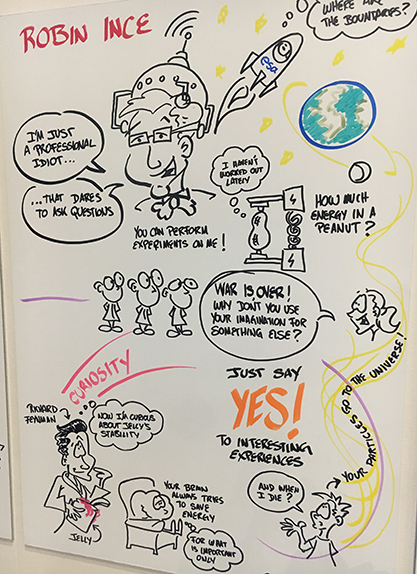 ROBIN INCE
WHERE ARE
THE BOUNDARIES?
esa
I'M JUST
A PROFESSIONAL
IDIOT...
...THAT DARES
TO ASK QUESTIONS
YOU CAN PERFORM
EXPERIMENTS ON ME!
I HAVEN'T
WORKED OUT
LATELY
HOW MUCH
ENERGY IN A
PEANUT?
WAR IS OVER!
WHY DON'T YOU USE
YOUR IMAGINATION FOR
SOMETHING ELSE?
CURIOSITY
RICHARD
FEYNMAN
NOW I'M CURIOUS
ABOUT JELLY'S
STABILITY
JELLY
YOUR BRAIN
ALWAYS TRIES
TO SAVE
ENERGY
FOR WHAT
IS IMPORTANT
ONLY
JUST SAY
YES!
TO INTERESTING
EXPERIENCES
AND WHEN
I DIE?
YOUR PARTICLES GO TO THE UNIVERSE!